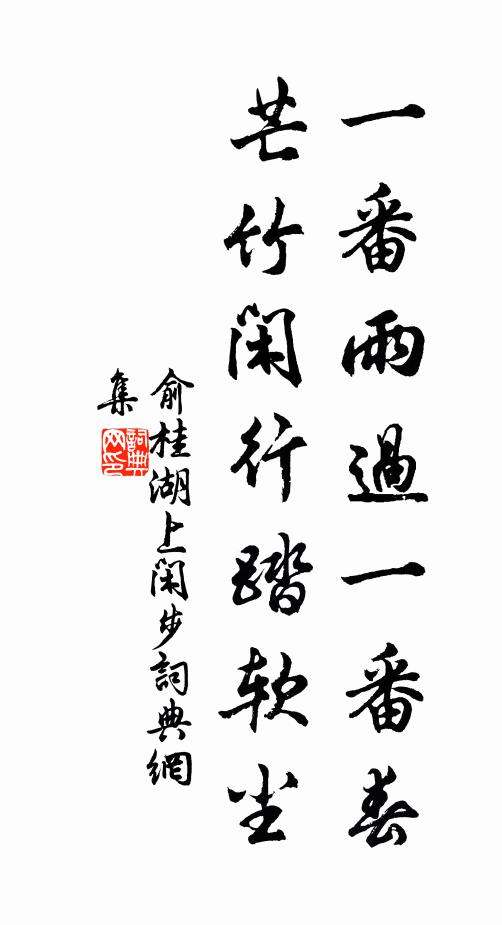 一番雨過一番春
芒竹閑行踏软尘
俞桂湖上閑步詞典網
集
詞典
网印